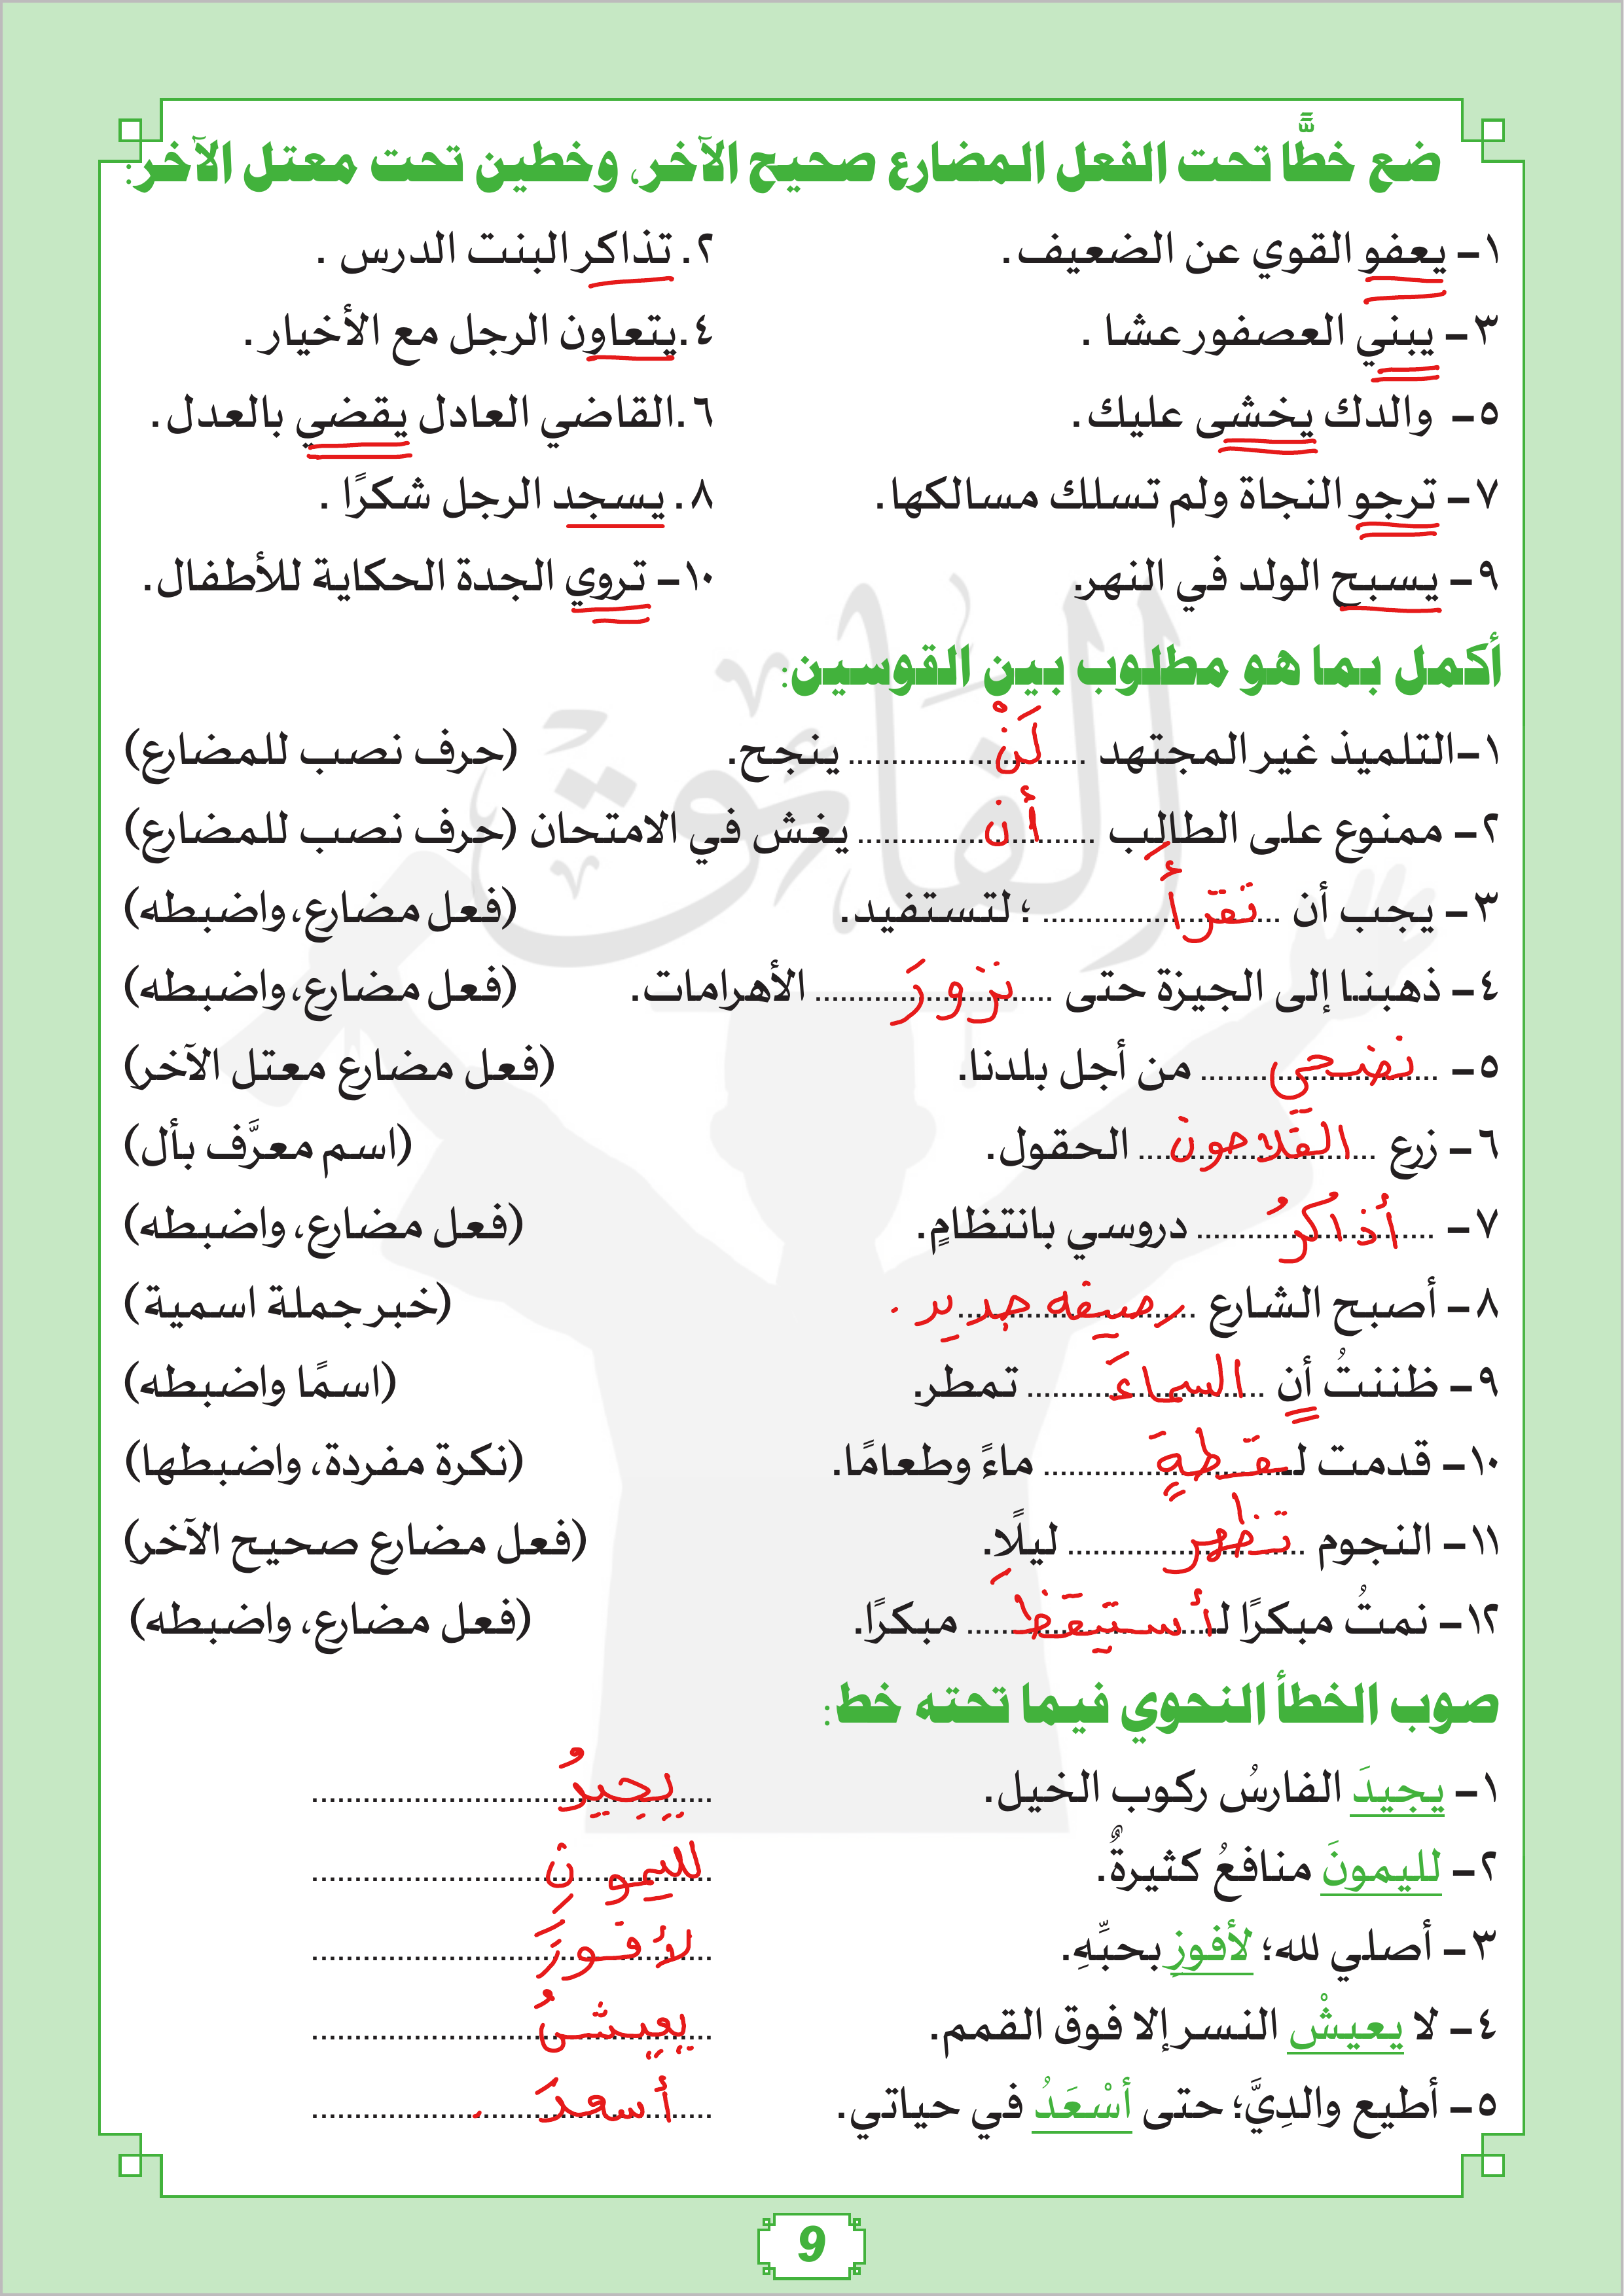 ضع خطًّا تحت الفعل المضارع صحيح الآخر، وخطين تحت معتل الآخر:
١- يعفو القوي عن الضعيف. ٢. تذاكر البنت الدرس .
٣- يبني العصفور عشا . ٤.يتعاون الرجل مع الأخيار.
٥- والدك يخشى عليك. ٦.القاضي العادل يقضي بالعدل.
٧- ترجو النجاة ولم تسلك مسالكها. ٨. يسجد الرجل شكرًا .
٩- يسبح الولد في النهر. ١٠- تروي الجدة الحكاية للأطفال.
أكمل بما هو مطلوب بين القوسين:
١-التلميذ غير المجتهد لَنْ ينجح. (حرف نصب للمضارع)
٢- ممنوع على الطالب أن يغش في الامتحان (حرف نصب للمضارع)
٣- يجب أن تقرأَ ؛ لتستفيد. (فعل مضارع، واضبطه)
٤- ذهبنا إلى الجيزة حتى نزورَ الأهرامات. (فعل مضارع، واضبطه)
٥- نضحي من أجل بلدنا. (فعل مضارع معتل الآخر)
٦- زرع الفلاحون الحقول. (اسم معرَّف بأل)
٧- أُذاكرُ دروسي بانتظامٍ. (فعل مضارع، واضبطه)
٨- أصبح الشارع رصيفه جديد . (خبر جملة اسمية)
٩- ظننتُ أن السماءَ تمطر. (اسمًا واضبطه)
١٠- قدمت لـقطةٍ ماءً وطعامًا. (نكرة مفردة، واضبطها)
١١- النجوم تظهر ليلًا. (فعل مضارع صحيح الآخر)
١٢- نمتُ مبكرًا لـأستيقظَ مبكرًا. (فعل مضارع، واضبطه)
صوب الخطأ النحوي فيما تحته خط:
١- يجيدَ الفارسُ ركوب الخيل. يجيدُ
٢- لليمونَ منافعُ كثيرةٌ. لليمونِ
٣- أصلي لله؛ لأفوزِ بحبِّهِ. لأفوزَ
٤- لا يعيشْ النسر إلا فوق القمم. يعيشُ
٥- أطيع والدِيَّ؛ حتى أسْعَدُ في حياتي. أسعدَ .
الفائق
9